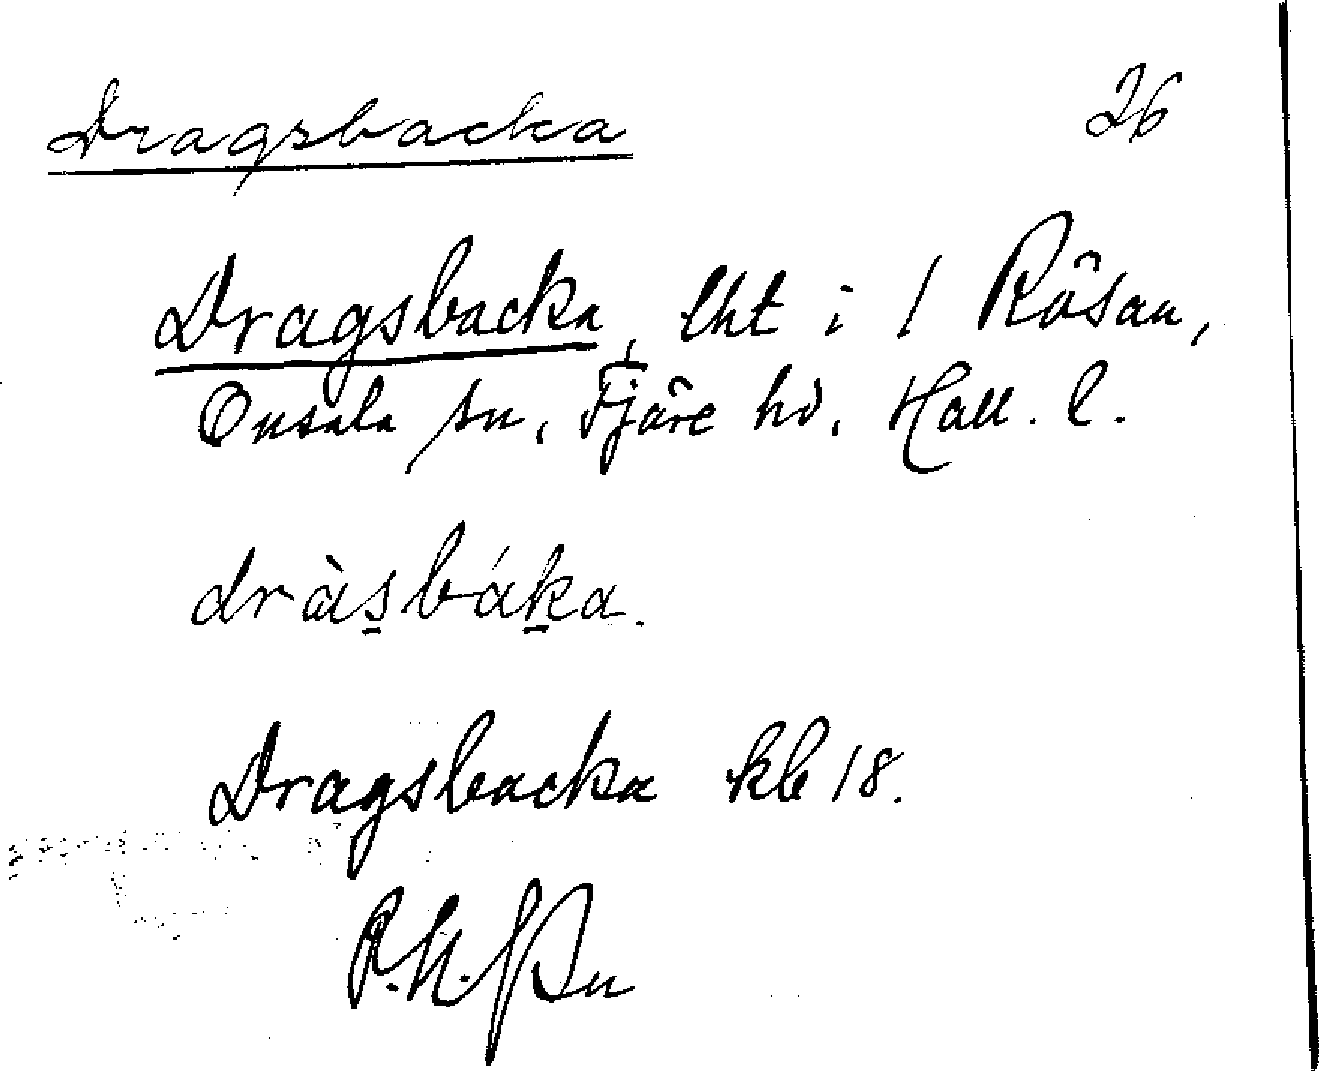 Dragsbacka 26
Dragsbacka, lht i 1 Rösan,
Onsala sn, Fjäre hd, Hall. l.
dràsbáka.
Dragsbacka kb 18.